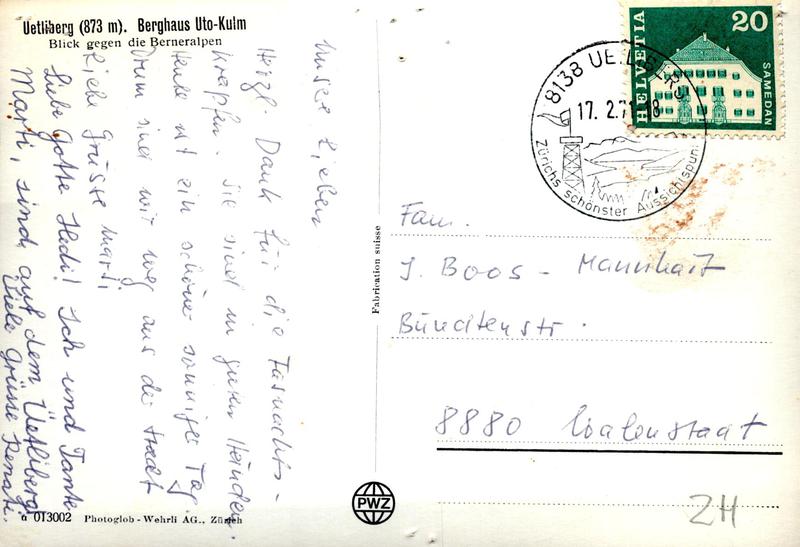 Uetliberg (873 m). Berghaus Uto-Kulm
Blick gegen die Berneralpen
Unsere Lieben
Herzl. Dank für die Fasnachts-
krapfen. Sie sind in guten Händen.
Heute ist ein schöner sonniger Tag.
Drum sind wir weg aus der Stadt
Liebe Grüsse Marti
Liebe Gotte Hedi! Ich und Tante
Marti, sind auf dem Üetliberg.
Viele Grüsse Renate.
α 013002 Photoglob-Wehrli AG., Zürich
Fabrication suisse
PWZ
8138 UETLIBERG
17. 2.71-18
Zürichs schönster Aussichtspunkt
HELVETIA
20
SAMEDAN
Fam.
J. Boos - Mannhart
Bündtenstr.
8880 Walenstadt
ZH